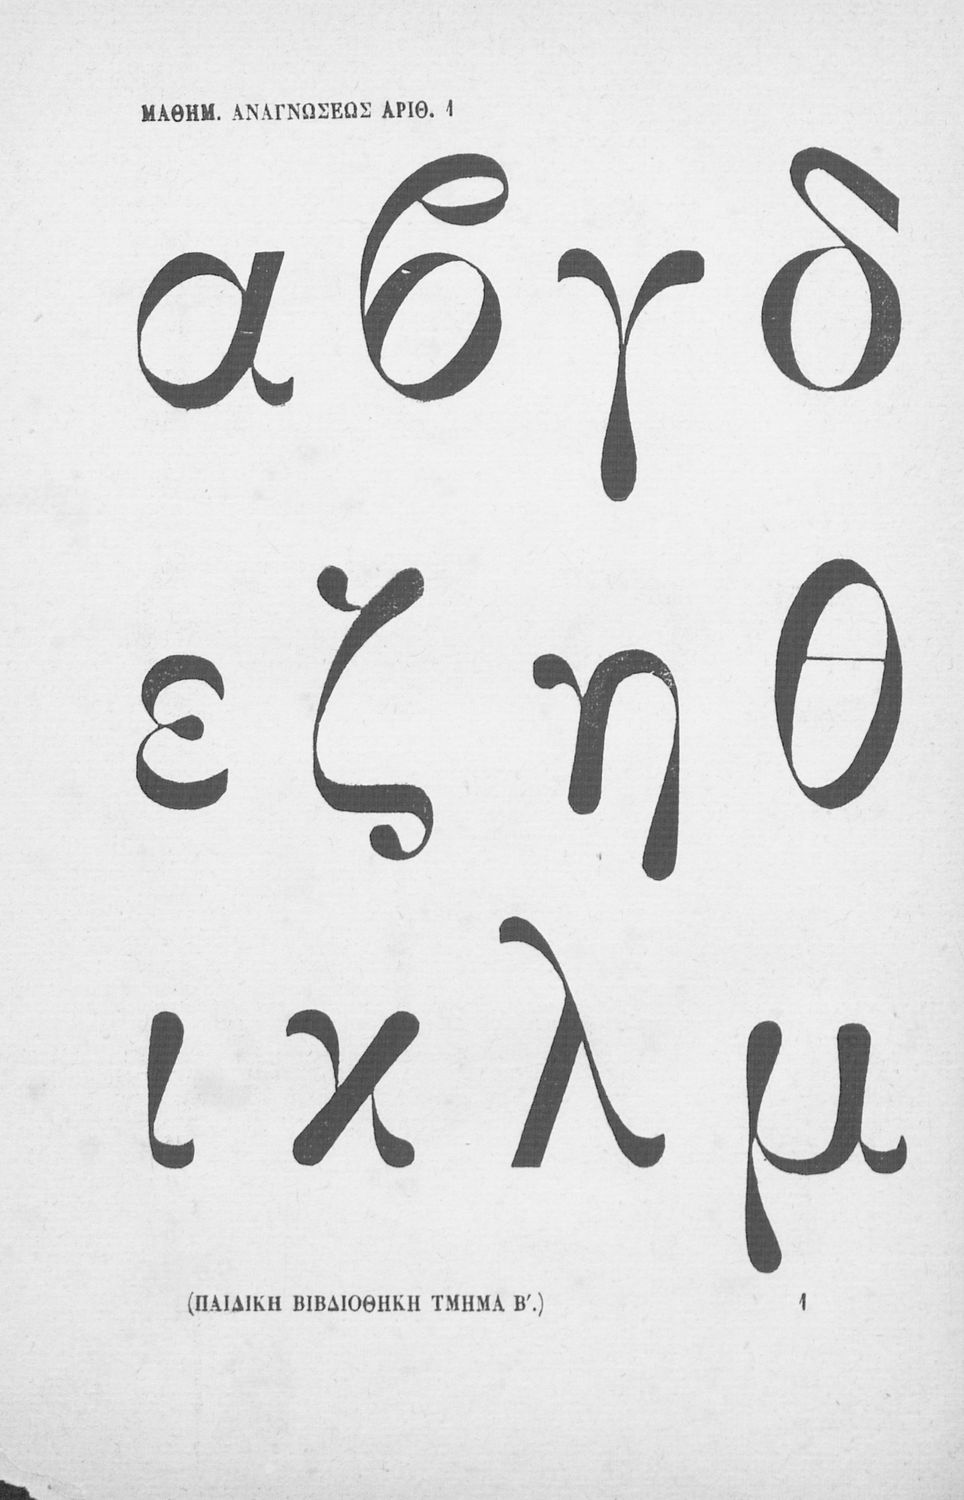 ΜΑΘΗΜ. ΑΝΑΓΝΩΣΕΩΣ ΑΡΙΘ. 1
α β γ δ
ε ζ η θ
ι κ λ μ
(ΠΑΙΔΙΚΗ ΒΙΒΔΙΟΘΗΚΗ ΤΜΗΜΑ Β΄.) 1